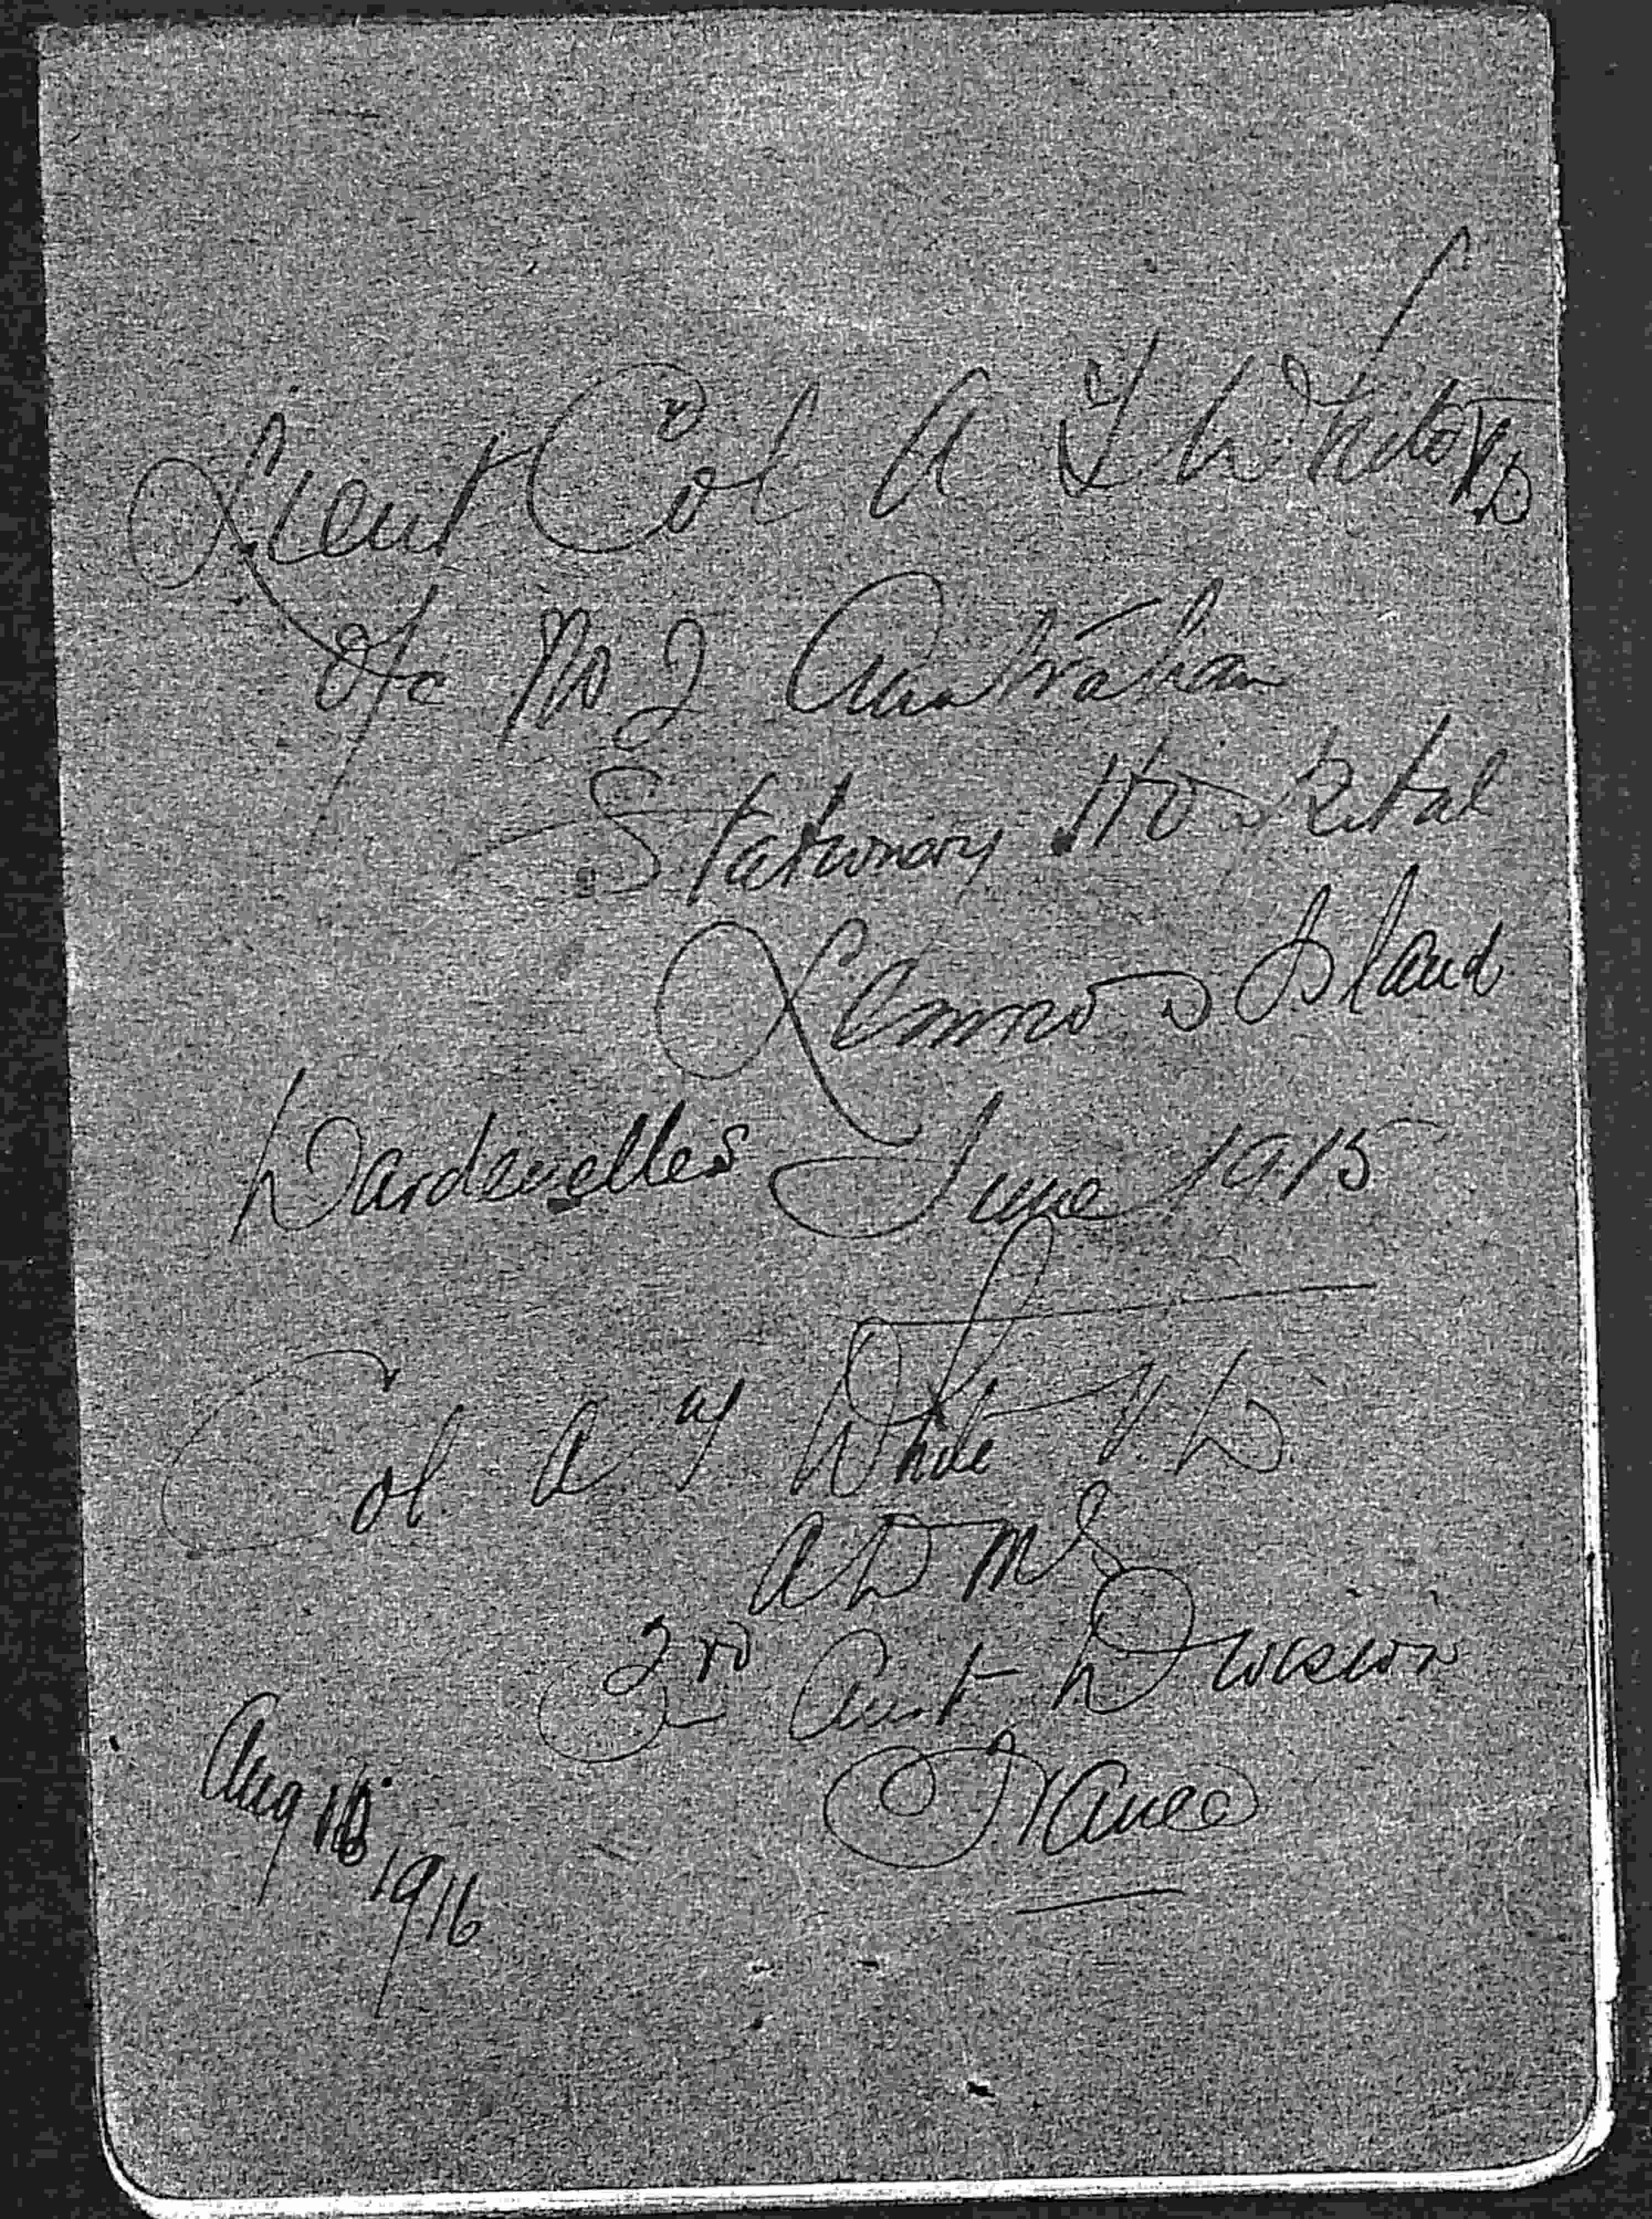 Lieut Col A Y White VD
O/c No 2 Australian
Stationary Hospital
Lemnos Island
Dardenelles June 1915
Col A Y White V.D.
A D M S
3rd Aust Division
France
Aug
1916